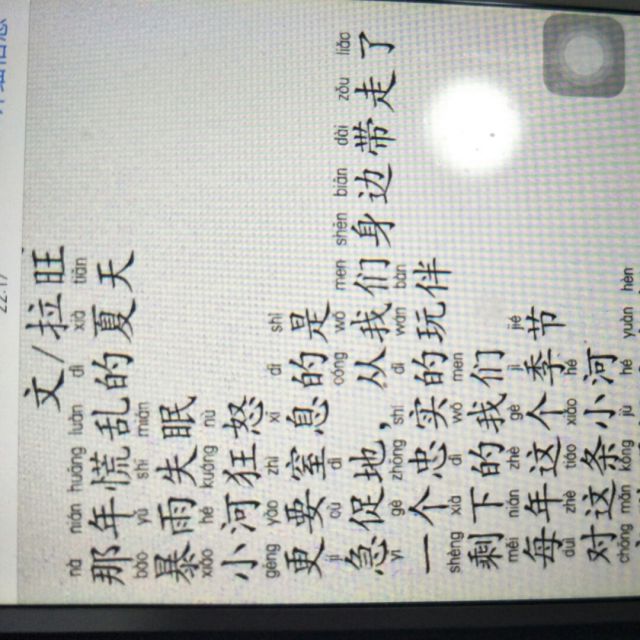 文/拉旺
nà nián huāng luàn dí xià tiān
那年慌乱的夏天
bào yǔ shī mián
暴雨失眠
xiǎo hé kuáng nù
小河狂怒
gèng yào zhì xī dí shì
更要窒息的是
jí qù dì cóng wǒ men shēn biān dài zǒu liǎo
急促地,从我们身边带走了
yī gè zhōng shí dí wán bàn
一个忠实的玩伴
shèng xià dí wǒ men
剩下的我们
měi nián zhè gè jì jié
每年这个季节
duì zhè tiáo xiǎo hé
对这条小河
chōng mǎn kǒng jù hé yuàn hèn